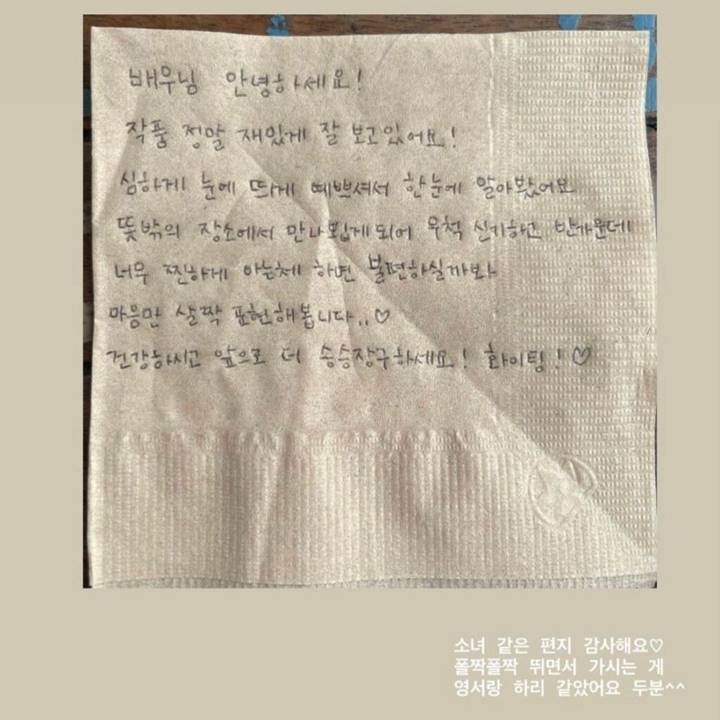 배우님 안녕하세요!
작품 정말 재밌게 잘 보고있어요!
심하게 눈에 띄게 예쁘셔서 한눈에 알아봤어요
뜻밖의 장소에서 만나뵙게되어 무척 신기하고 반가운데
너무 찐하게 아는체 하면 불편하실까봐
마음만 살짝 표현해봅니다..♡
건강하시고 앞으로 더 승승장구하세요! 화이팅!♡
소녀 같은 편지 감사해요♡
폴짝폴짝 뛰면서 가시는 게
영서랑 하리 같았어요 두분^^